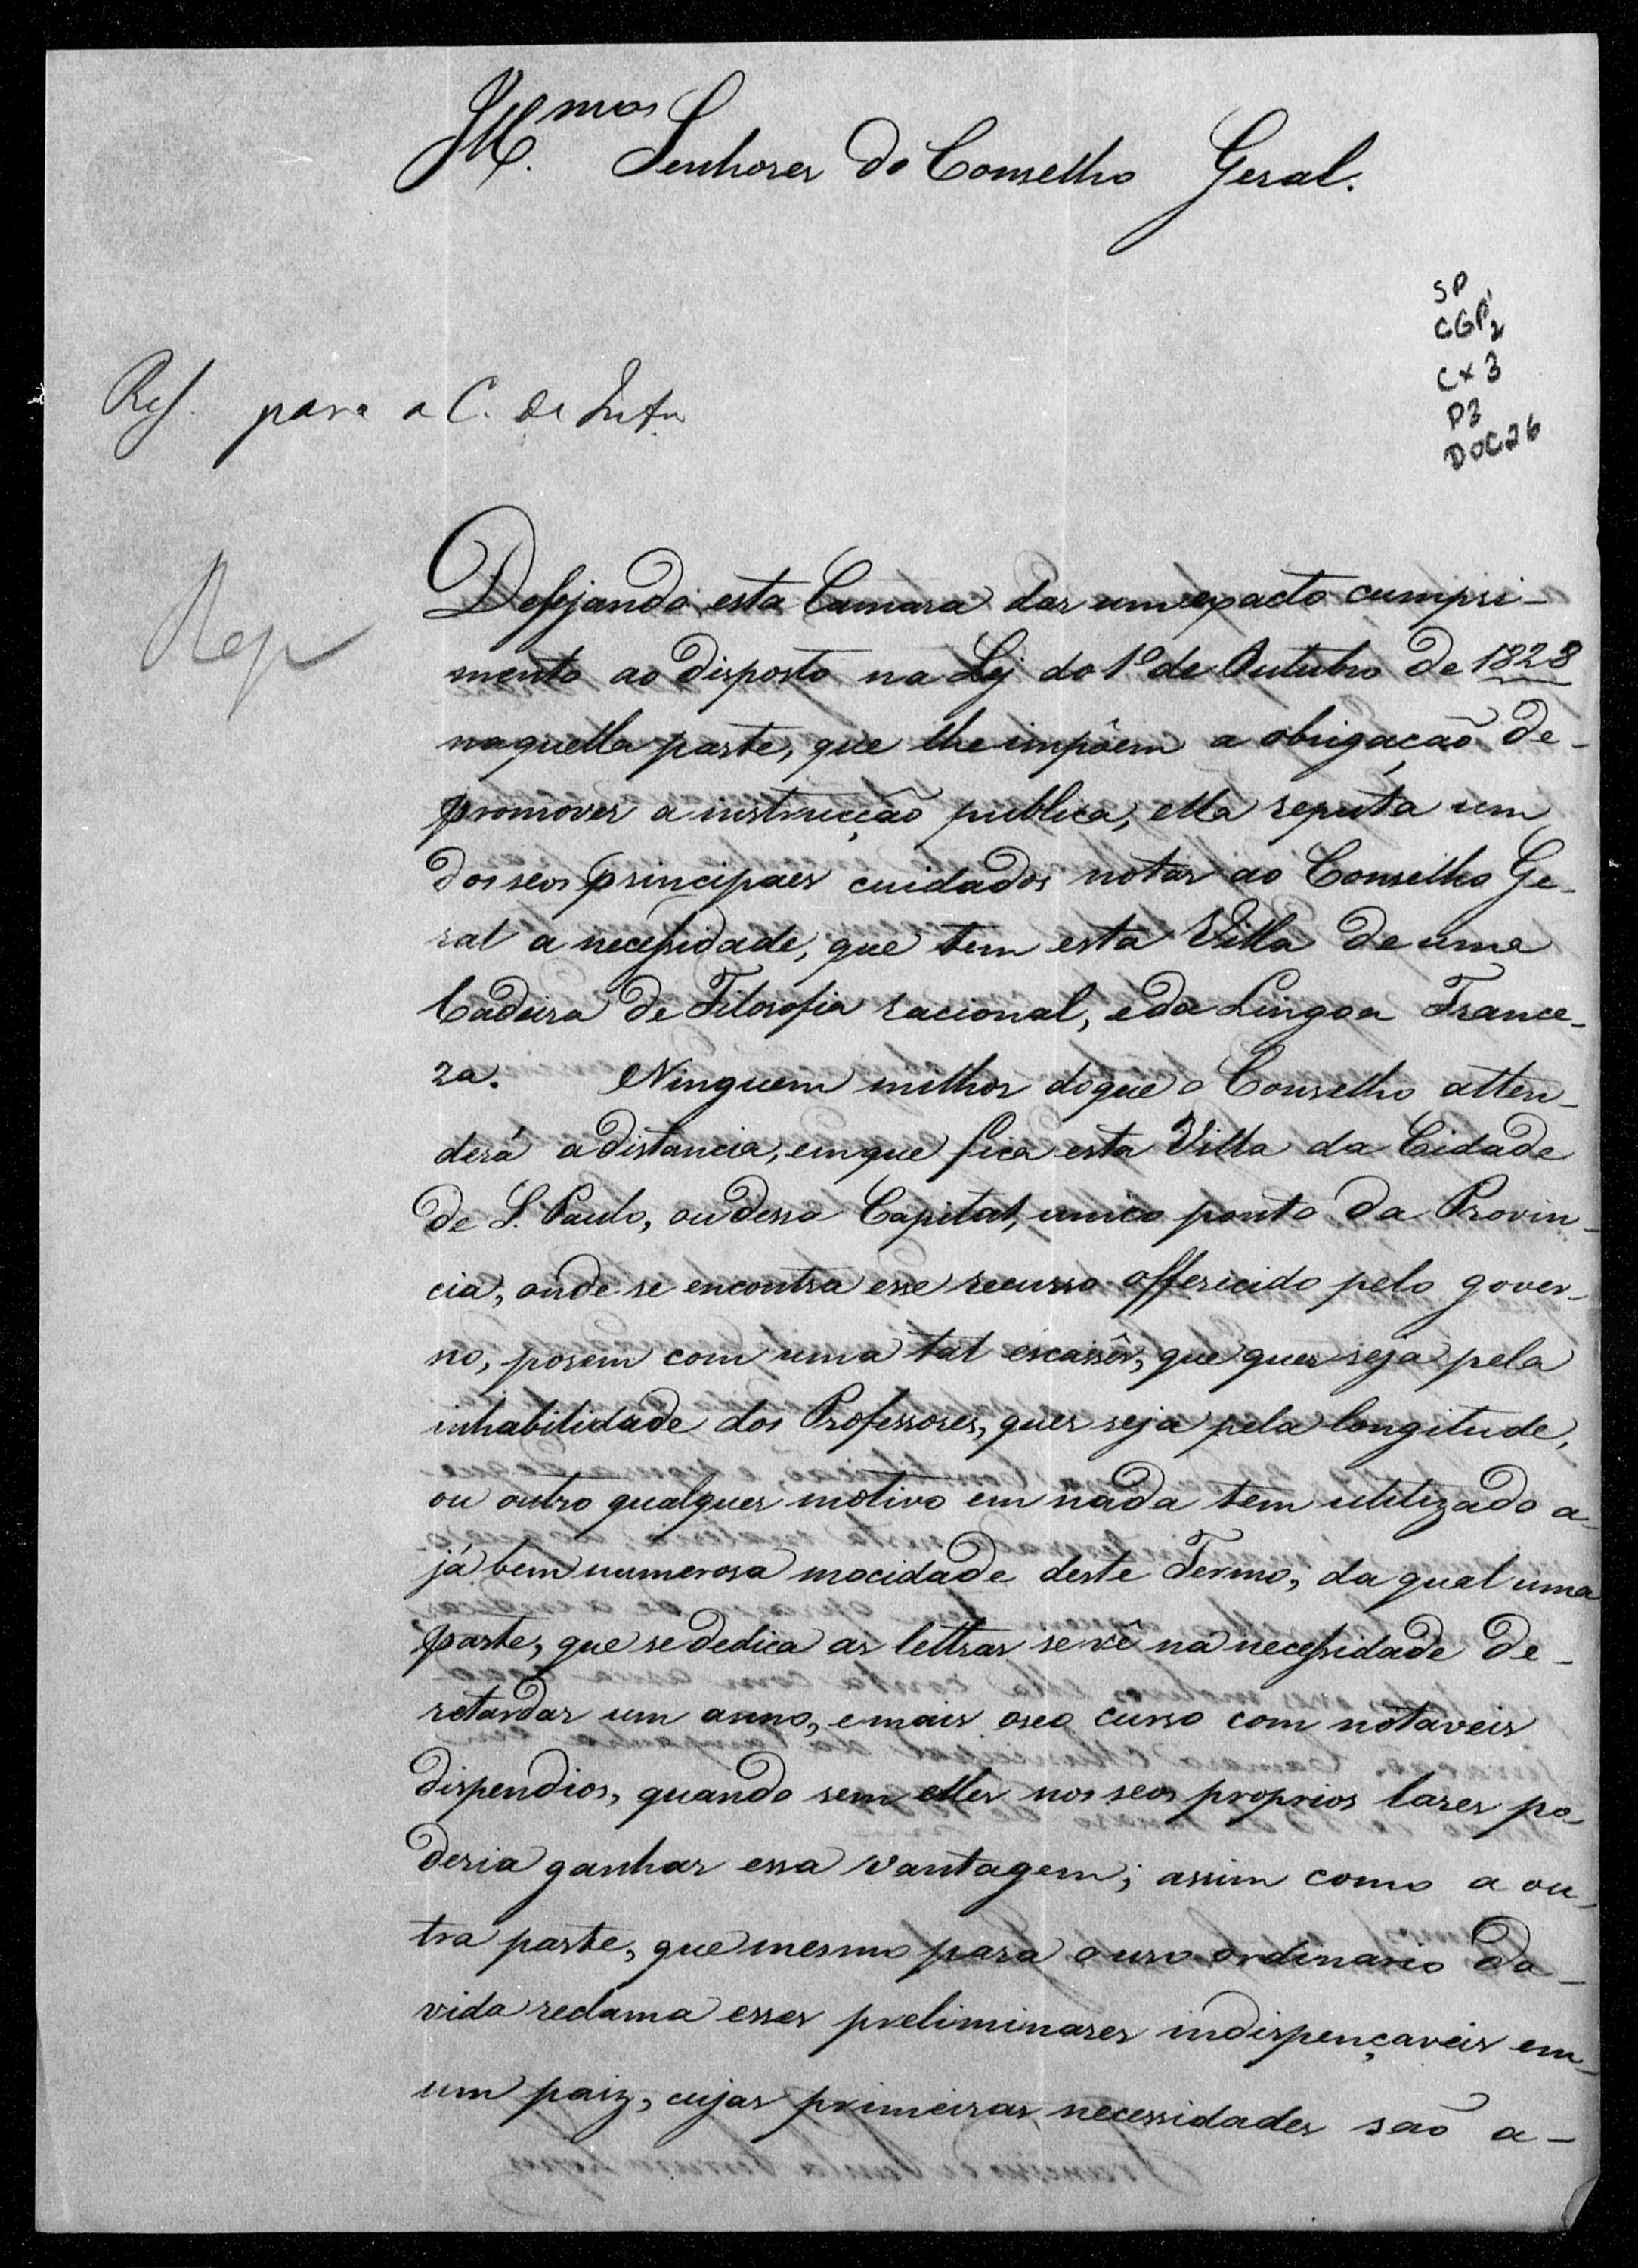 Ill.mos Senhores do Conselho Geral.
SP
CGP2
CX 3
P3
DOC26
para a C. de
Rep
Desejando esta Camara dar um exacto cumpri-
mento ao disposto na Ley do 1º de Outubro de 1828
naquella parte, que lhe impôem a obrigação de-
promover a instrucção publica, ella reputa um
dos seos principaes cuidados notar ao Conselho Ge-
ral a necessidade, que tem esta Villa de uma
Cadeira de Filosofia racional, e da Lingoa France-
za. Ninguem milhor do que o Conselho atten-
derá a distancia, em que fica esta Villa da Cidade
de S. Paulo, ou dessa Capital, unico ponto da Provin-
cia, onde se encontra esse recurso offerecido pelo gover-
no, porem com uma tal escassêz, que quer seja pela
inhabilidade dos Professores, quer seja pela longitude,
ou outro qualquer motivo em nada tem utilizado a-
já bem numerosa mocidade deste Termo, da qual uma
parte, que se dedica as lettras se vê na necessidade de-
retardar um anno, e mais o seo curso com notaveis
dispendios, quando sem elles nos seos proprios lares po-
deria ganhar essa vantagem; assim como a ou-
tra parte, que mesmo para o uso ordinario da-
vida reclama esses preliminares indispençaveis em-
um paiz, cujas primeiras necessidades são a-